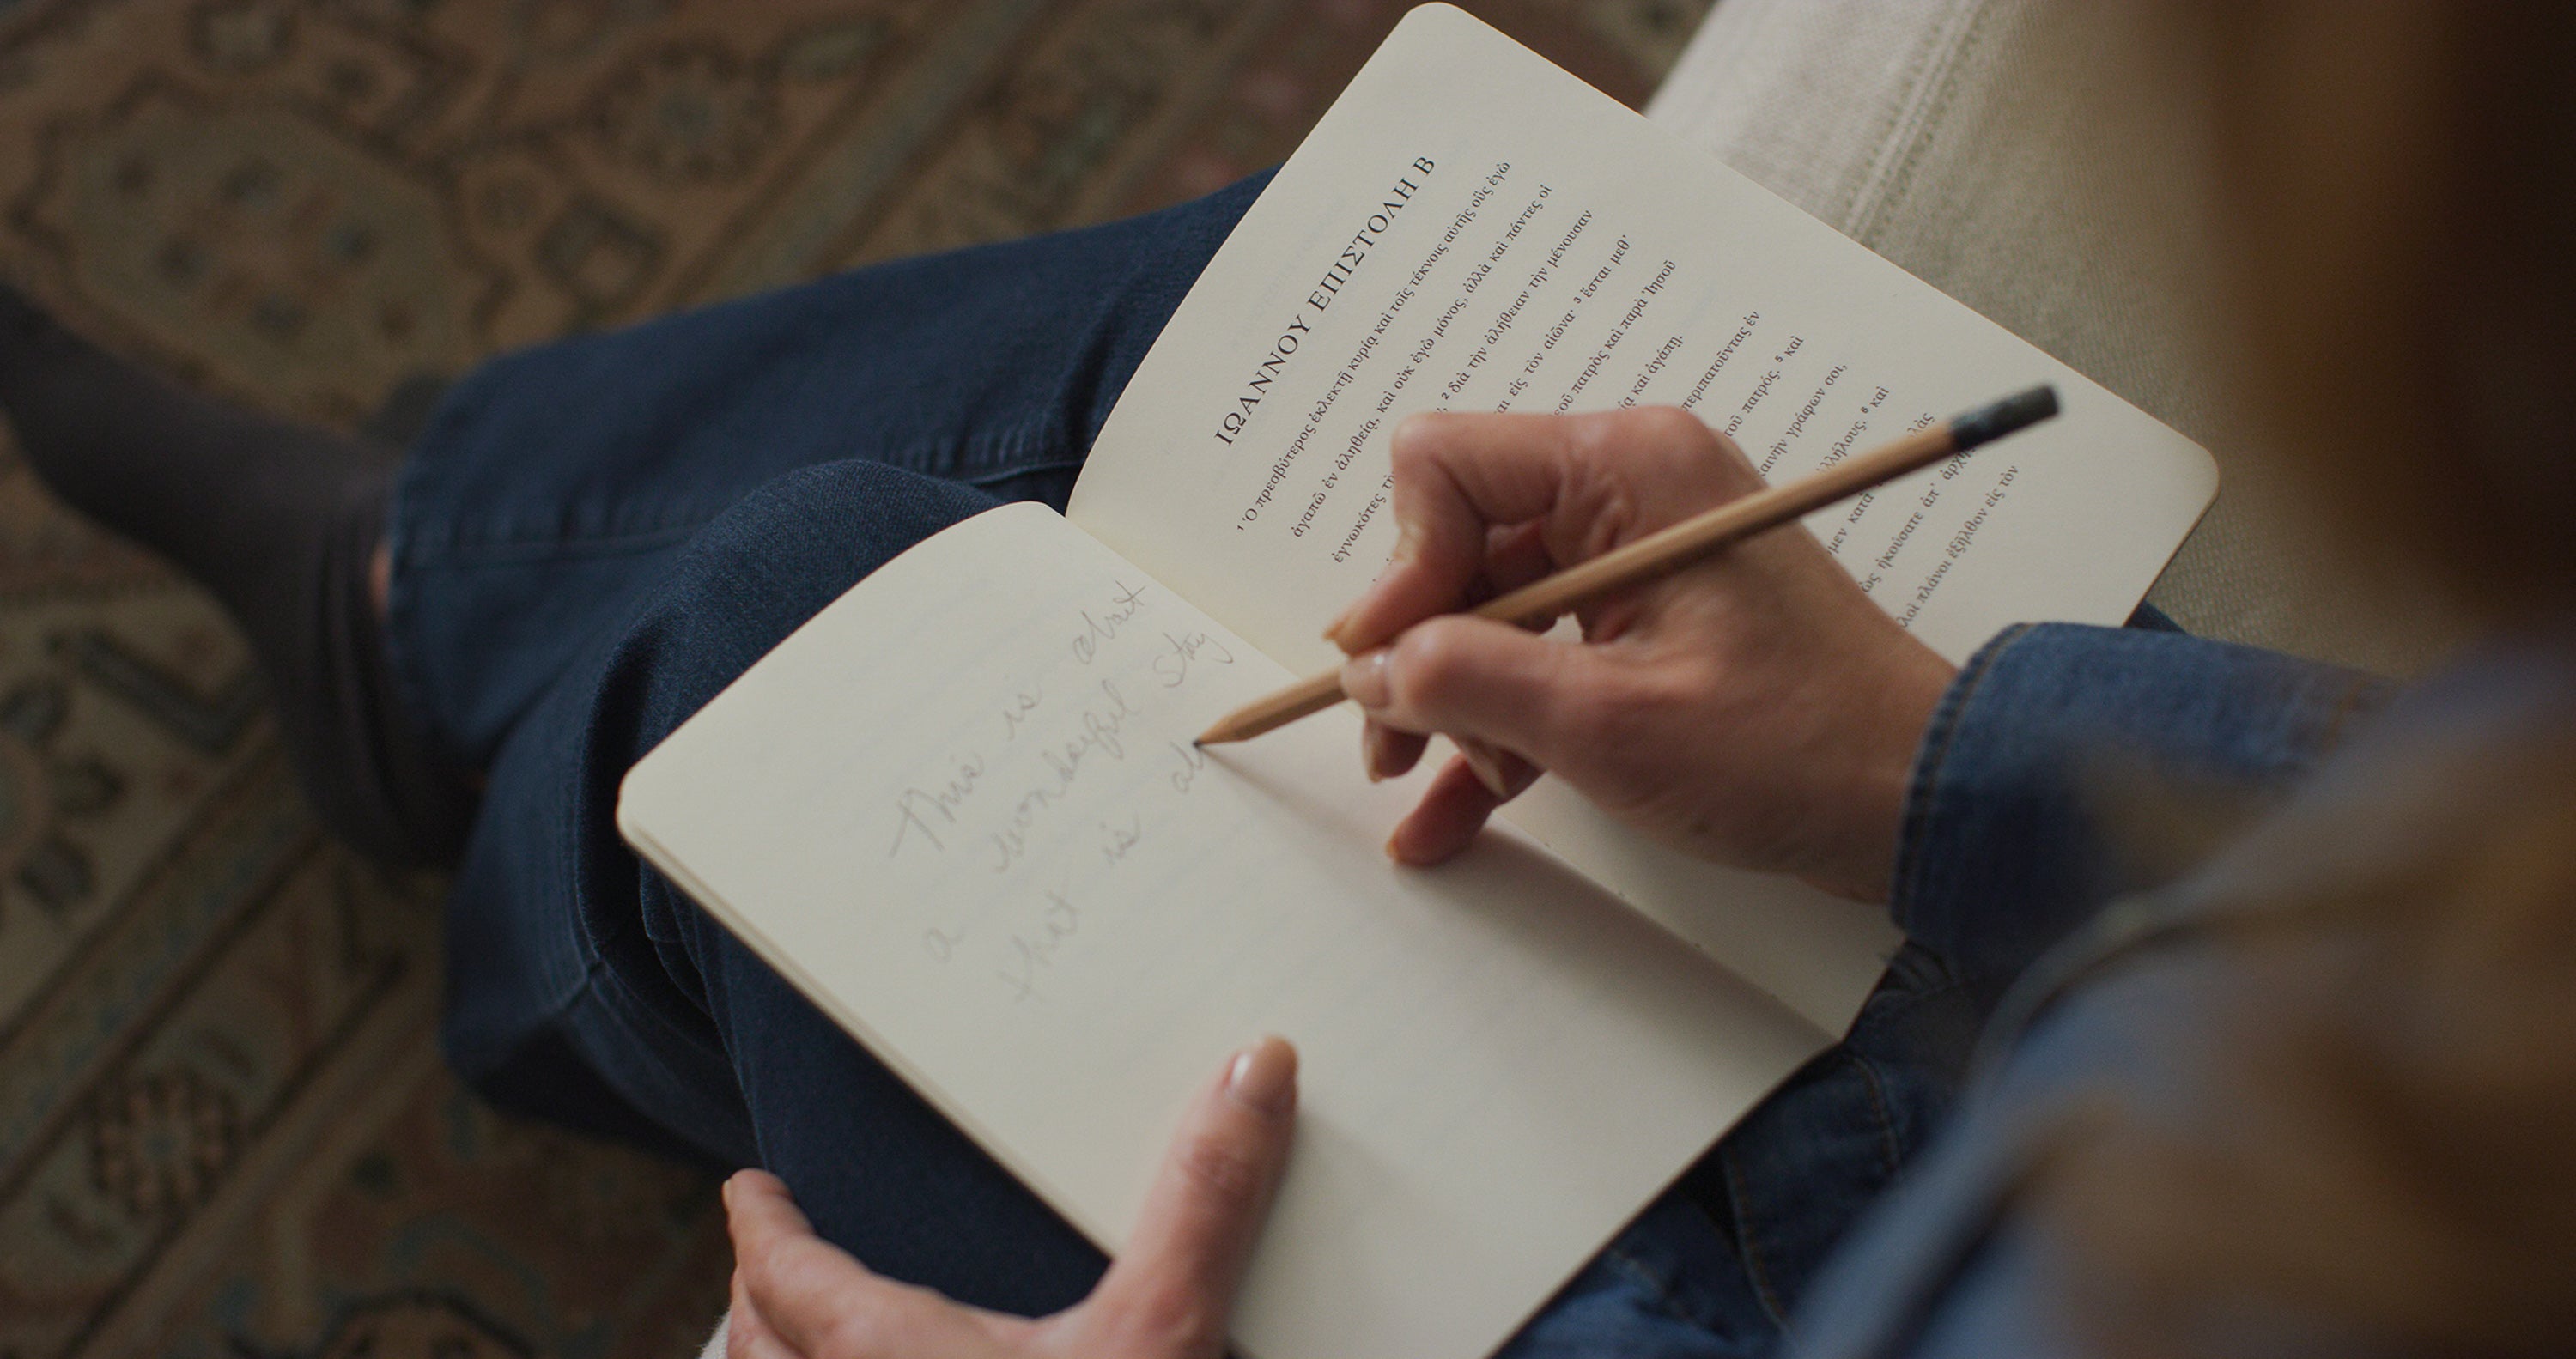 ΙΩΑΝΝΟΥ ΕΠΙΣΤΟΛΗ Β
¹ Ὁ πρεσβύτερος ἐκλεκτῇ κυρίᾳ καὶ τοῖς τέκνοις αὐτῆς οὓς ἐγὼ
ἀγαπῶ ἐν ἀληθείᾳ, καὶ οὐκ ἐγὼ μόνος, ἀλλὰ καὶ πάντες οἱ
ἐγνωκότες ² διὰ τὴν ἀλήθειαν τὴν μένουσαν
εἰς τὸν αἰῶνα· ³ ἔσται μεθ’
πατρὸς καὶ παρὰ Ἰησοῦ
καὶ ἀγάπῃ.
περιπατοῦντας ἐν
τοῦ πατρός. ⁵ καὶ
γράφων σοι,
⁶ καὶ
κατὰ
ἠκούσατε ἀπ’
πλάνοι ἐξῆλθον εἰς τὸν
This is about
a wonderful story
that is